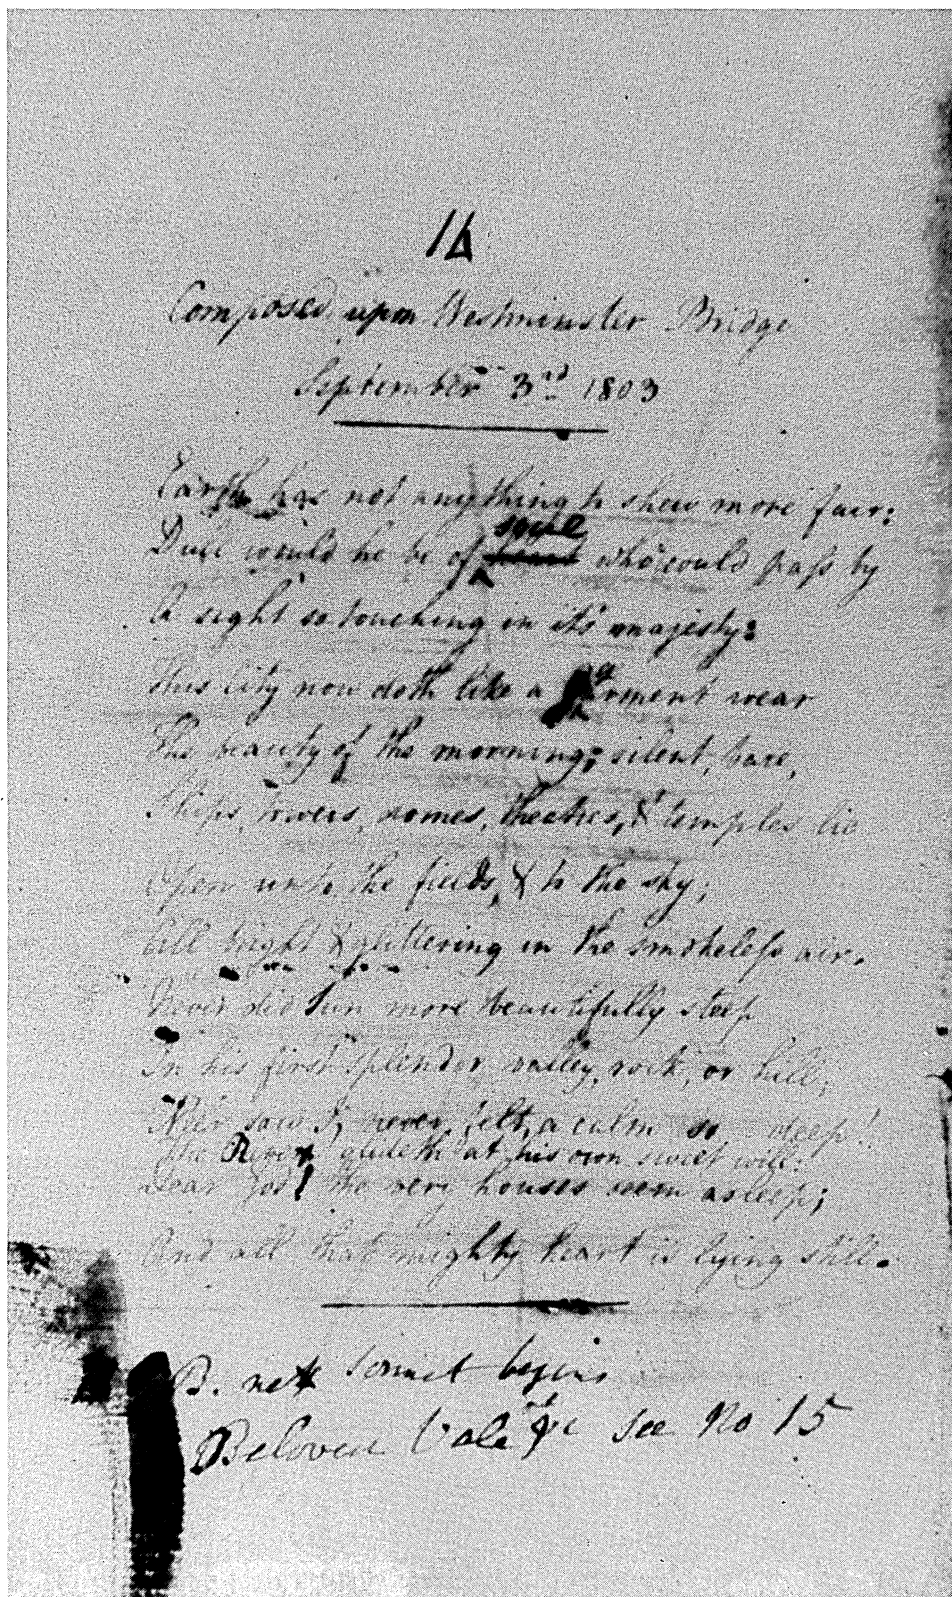 14
Composed upon Westminster Bridge
September 3rd 1803
Earth has not anything to shew more fair:
soul
Dull would he be of who could pass by
A sight so touching in it's majesty:
This City now doth like a garment wear
The beauty of the morning; silent, bare,
Ships, towers, domes, theatres, & temples lie
Open unto the fields, & to the sky;
All bright & glittering in the smokeless air.
Never did sun more beautifully steep
In his first splendor valley, rock, or hill;
Ne'er saw I, never felt, a calm so deep!
The River glideth at his own sweet will:
Dear God! the very houses seem asleep;
And all that mighty heart is lying still.
B. next Sonnet begins
Beloved Vale &c see No 15